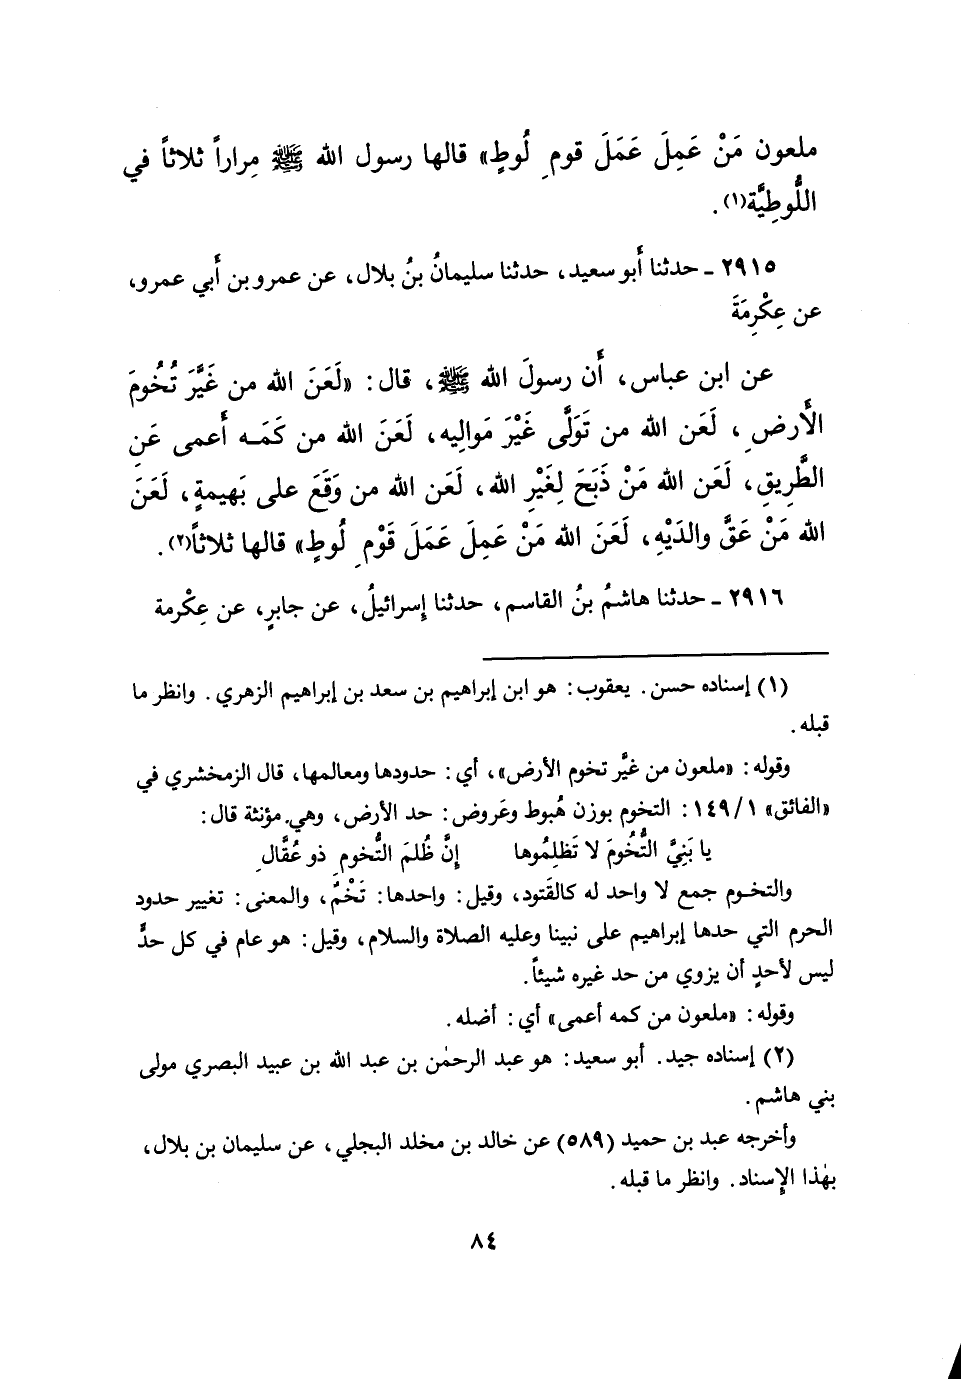 ملعون مَنْ عَمِلَ عَمَلَ قومِ لُوطٍ» قالها رسول الله ﷺ مِراراً ثلاثاً في
اللُّوطِيَّة(١).
٢٩١٥ ـ حدثنا أَبو سعيد، حدثنا سليمانُ بنُ بلال، عن عمرو بن أَبي عمرو،
عن عِكْرِمَةَ
عن ابن عباس، أَن رسولَ الله ﷺ، قال: «لَعَنَ الله من غَيَّرَ تُخُومَ
الأَرضِ، لَعَن الله من تَوَلَّى غَيْرَ مَوالِيه، لَعَنَ الله من كَمَـه أَعمى عَنِ
الطَّرِيقِ، لَعَن الله مَنْ ذَبَحَ لِغَيْرِ الله، لَعَن الله من وَقَعَ على بَهيمةٍ، لَعَنَ
الله مَنْ عَقَّ والدَيْهِ، لَعَنَ الله مَنْ عَمِلَ عَمَلَ قَوْمِ لُوطٍ» قالها ثلاثاً(٢).
٢٩١٦ ـ حدثنا هاشمُ بنُ القاسم، حدثنا إِسرائيلُ، عن جابرٍ، عن عِكْرمة
(١) إسناده حسن. يعقوب: هو ابن إبراهيم بن سعد بن إبراهيم الزهري. وانظر ما
قبله.
وقوله: «ملعون من غيَّر تخوم الأرض»، أي: حدودها ومعالمها، قال الزمخشري في
«الفائق» ١٤٩/١: التخوم بوزن هُبوط وعَروض: حد الأرض، وهي مؤنثة قال:
يا بَنِيَّ التُّخُومَ لا تَظلِمُوها إنَّ ظُلمَ التُّخومِ ذو عُقَّالِ
والتخـوم جمع لا واحد له كالقَتود، وقيل: واحدها: تَخْمٌ، والمعنى: تغيير حدود
الحرم التي حدها إبراهيم على نبينا وعليه الصلاة والسلام، وقيل: هو عام في كل حدٍّ
ليس لأحدٍ أن يزوي من حد غيره شيئاً.
وقوله: «ملعون من كمه أعمى» أي: أضله.
(٢) إسناده جيد. أبو سعيد: هو عبد الرحمٰن بن عبد الله بن عبيد البصري مولى
بني هاشم.
وأخرجه عبد بن حميد (٥٨٩) عن خالد بن مخلد البجلي، عن سليمان بن بلال،
بهٰذا الإِسناد. وانظر ما قبله.
٨٤